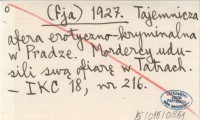 (fja) 1927. Tajemnicza
afera erotyczno-kryminalna
w Pradze. Mordercy udu-
sili swą ofiarę w Tatrach.
— IKC 18, nr 216.